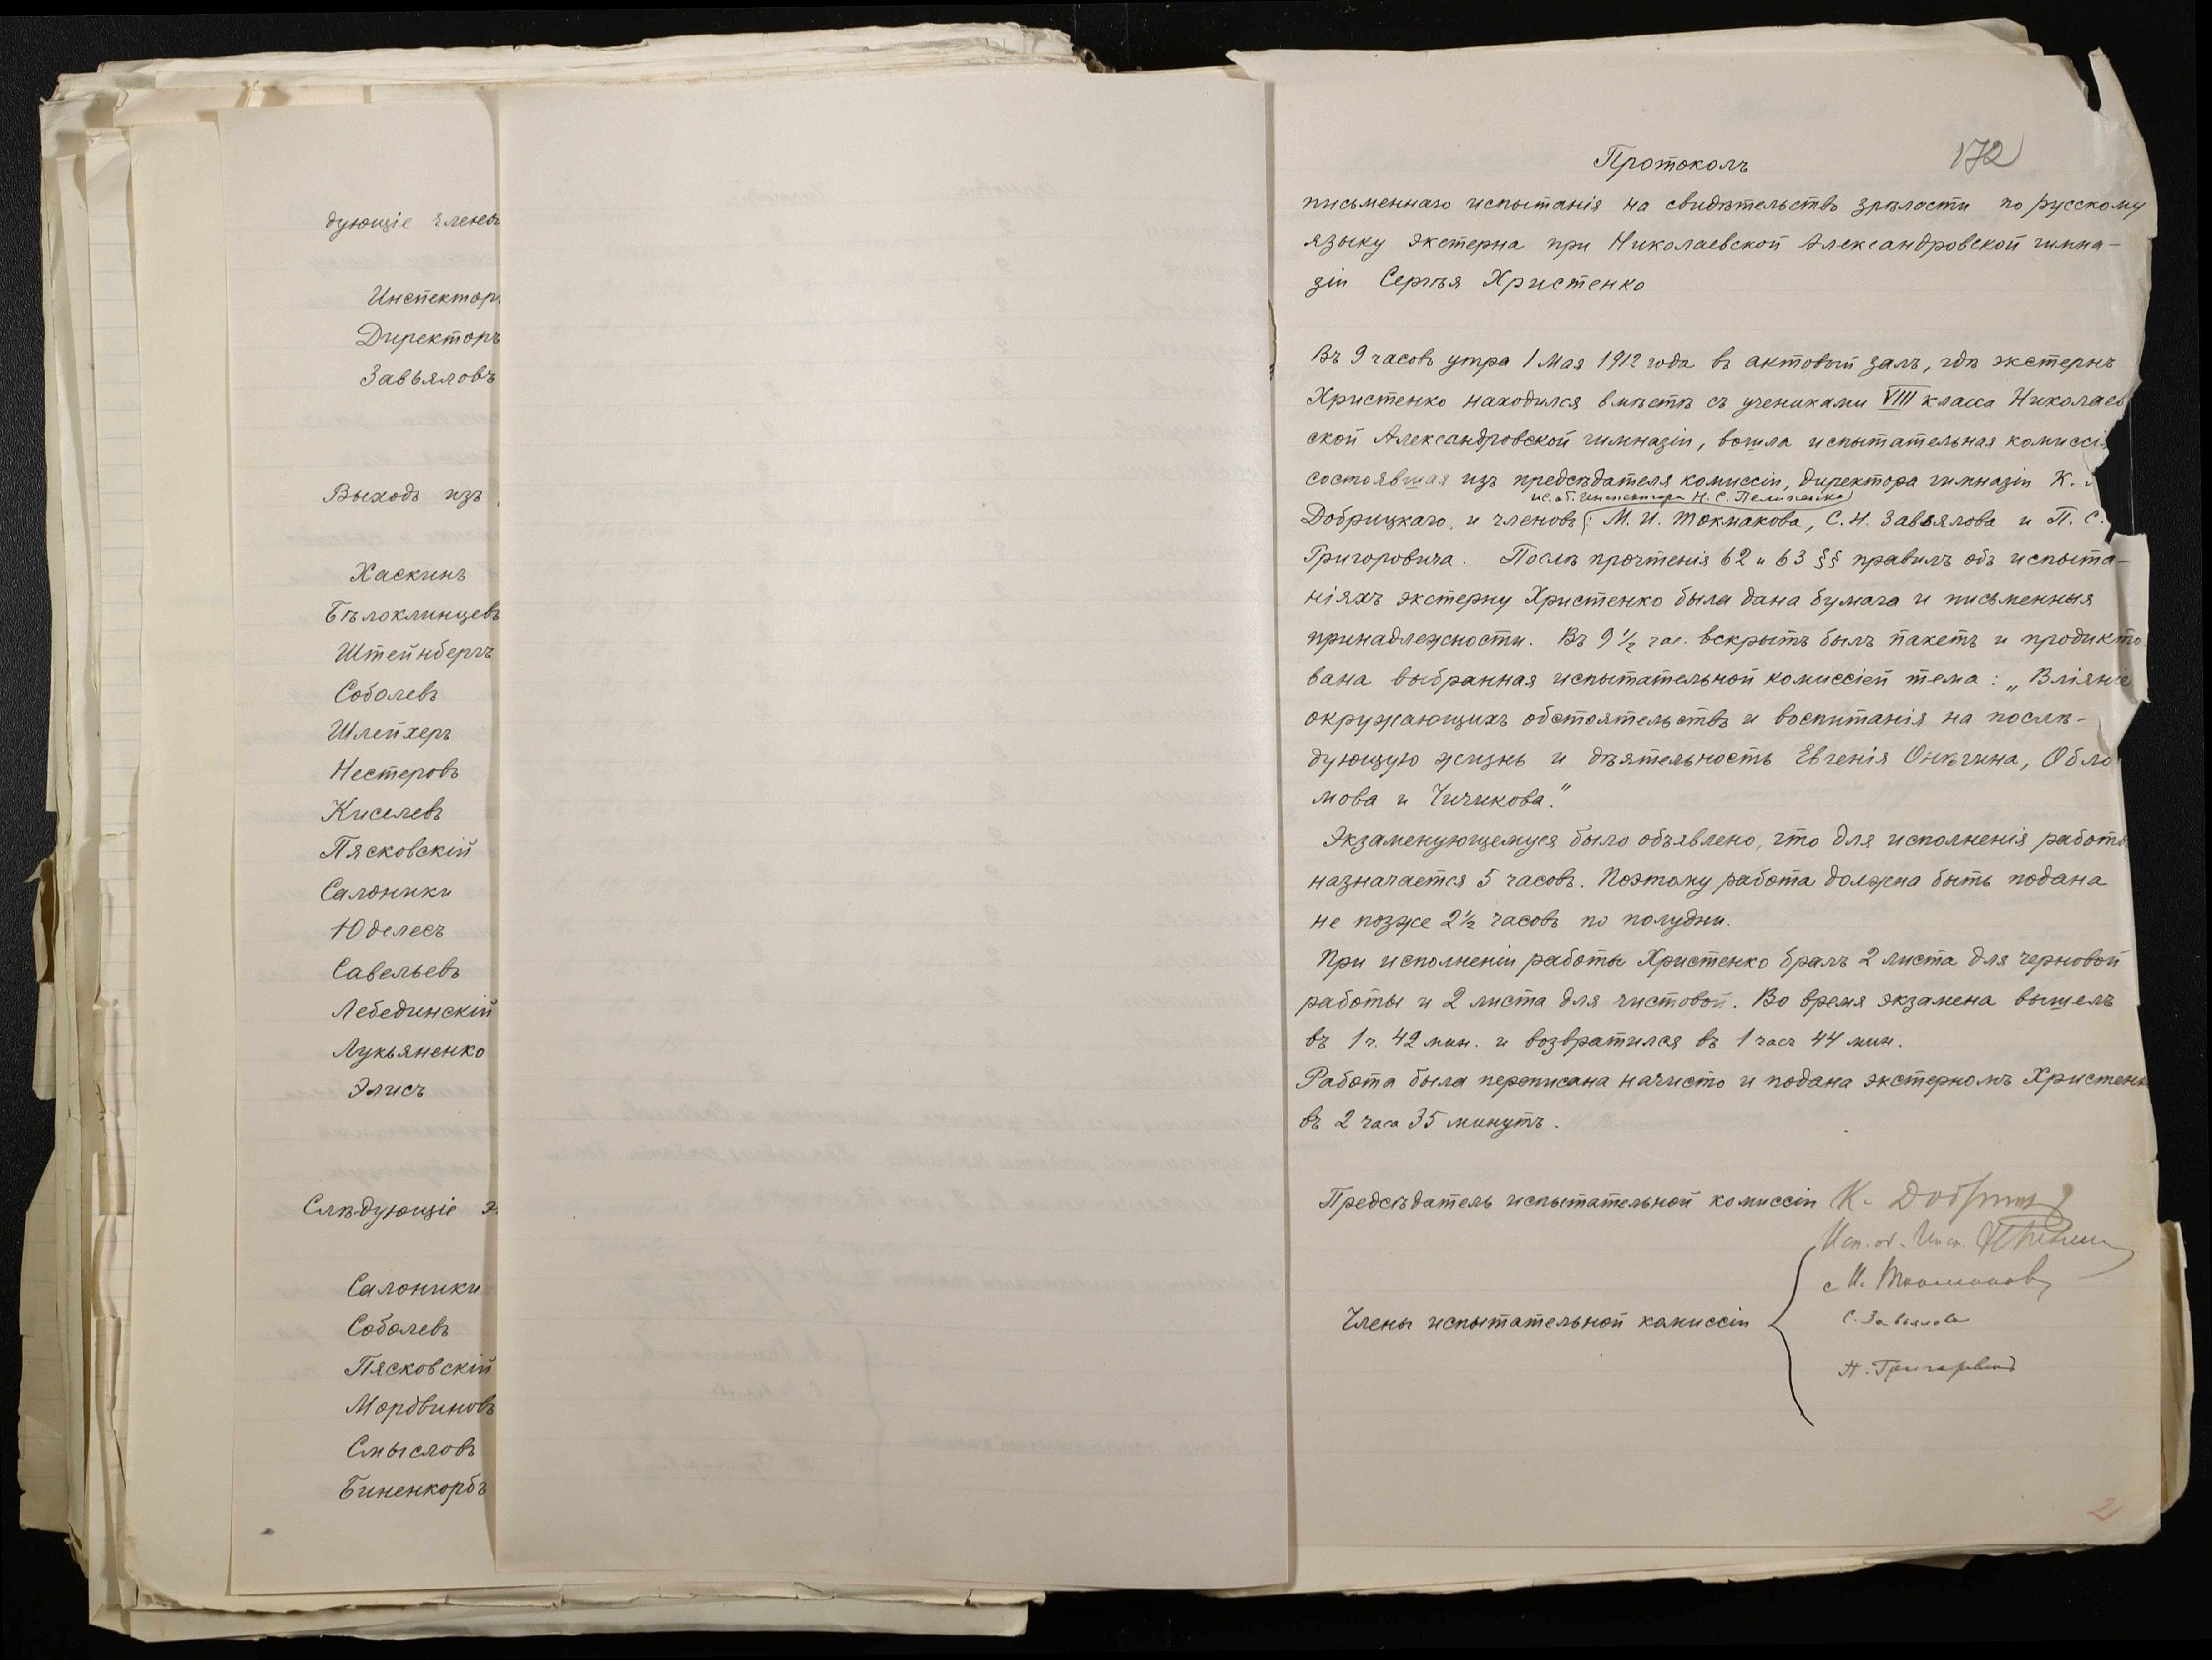 дующіе члены
Инспекторъ
Директоръ
Завьяловъ
Выходъ изъ
Хаскинъ
Бѣлоклинцевъ
Штейнбергъ
Соболевъ
Шлейхеръ
Нестеровъ
Киселевъ
Пясковскій
Салоники
Юделесъ
Савельевъ
Лебединскій
Лукьяненко
Элисъ
Слѣдующіе э
Салоники
Соболевъ
Пясковскій
Мордвиновъ
Смысловъ
Биненкорбъ
172
Протоколъ
письменнаго испытанія на свидѣтельство зрѣлости по русскому
языку экстерна при Николаевской Александровской гимна-
зіи Сергѣя Христенко
Въ 9 часовъ утра 1 Мая 1912 года въ актовый залъ, гдѣ экстернъ
Христенко находился вмѣстѣ съ учениками VIII класса Николаев
ской Александровской гимназіи, вошла испытательная комиссія
состоявшая изъ предсѣдателя комиссіи, директора гимназіи К.
ис. об. инспектора Н. С.
Добрицкаго и членовъ: М. И. Токмакова, С. Н. Завьялова и П. С.
Григоровича. Послѣ прочтенія 62 и 63 §§ правилъ объ испыта-
ніяхъ экстерну Христенко была дана бумага и письменныя
принадлежности. Въ 9 1/2 час. вскрытъ былъ пакетъ и продикто
вана выбранная испытательной комиссіей тема: „Вліяніе
окружающихъ обстоятельствъ и воспитанія на послѣ-
дующую жизнь и дѣятельность Евгенія Онѣгина, Обло
мова и Чичикова."
Экзаменующемуся было объявлено, что для исполненія работы
назначается 5 часовъ. Поэтому работа должна быть подана
не позже 2 1/2 часовъ по полудни.
При исполненіи работы Христенко бралъ 2 листа для черновой
работы и 2 листа для чистовой. Во время экзамена вышелъ
въ 1 ч. 42 мин. и возвратился въ 1 часъ 44 мин.
Работа была переписана начисто и подана экстерномъ Христенк
въ 2 часа 35 минутъ.
Предсѣдатель испытательной комиссіи К. Добриц
Исп. об. Инсп.
М. Токмаковъ
Члены испытательной комиссіи
С. Завьяловъ
П. Григоровичъ
2